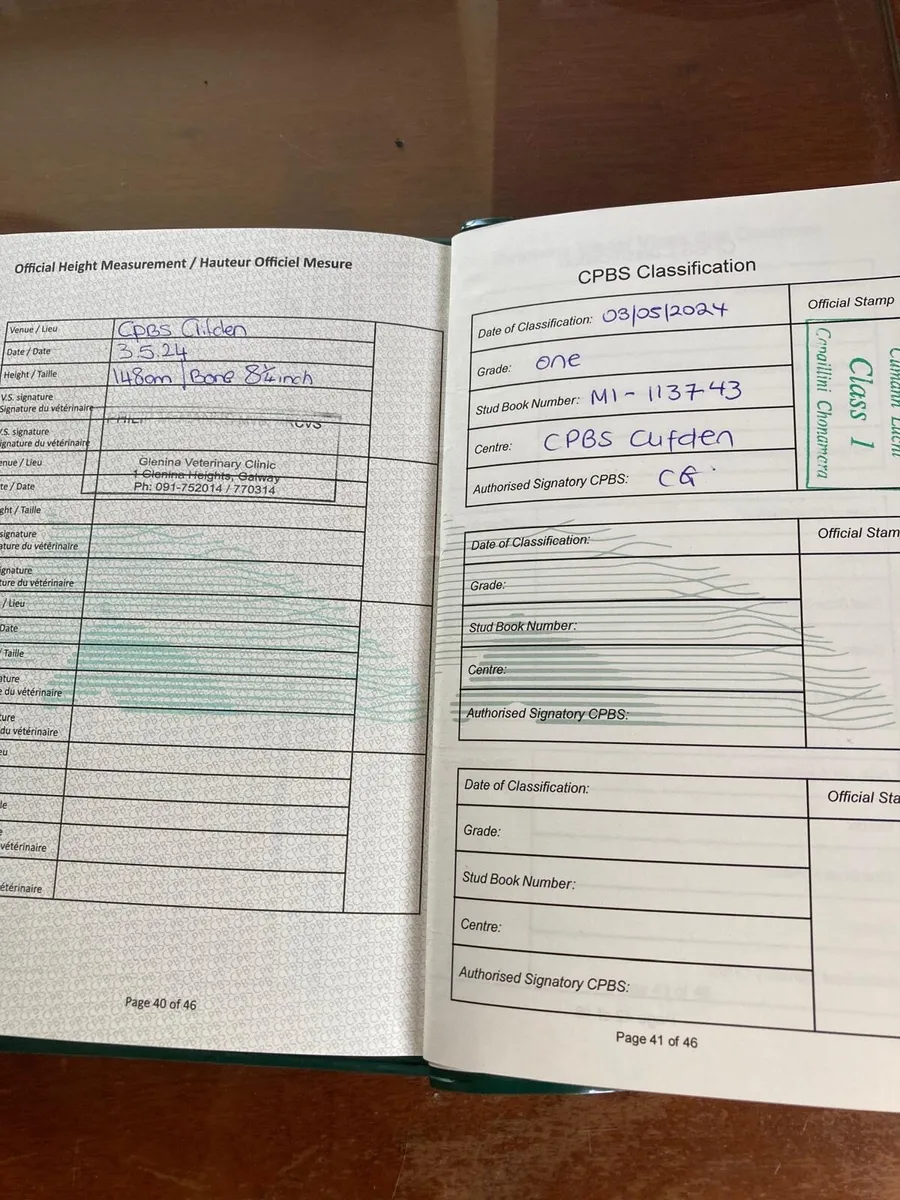 Official Height Measurement / Hauteur Officiel Mesure
Venue / Lieu CPBS Clifden
Date / Date 3.5.24
Height / Taille 148cm | Bone 8¼ inch
V.S. signature
Signature du vétérinaire
V.S. signature
ignature du vétérinaire
CVS
Glenina Veterinary Clinic
1 Glenina Heights, Galway
Ph: 091-752014 / 770314
enue / Lieu
te / Date
ght / Taille
signature
ature du vétérinaire
ignature
ture du vétérinaire
/ Lieu
Date
/ Taille
ature
e du vétérinaire
ture
du vétérinaire
eu
le
e
vétérinaire
étérinaire
Page 40 of 46
CPBS Classification
Date of Classification: 03/05/2024
Official Stamp
Grade: one
Stud Book Number: M1-113743
Centre: CPBS Clifden
Authorised Signatory CPBS: CG
Class 1
Capaillíní Chonamara
Date of Classification:
Official Stam
Grade:
Stud Book Number:
Centre:
Authorised Signatory CPBS:
Date of Classification:
Official Sta
Grade:
Stud Book Number:
Centre:
Authorised Signatory CPBS:
Page 41 of 46